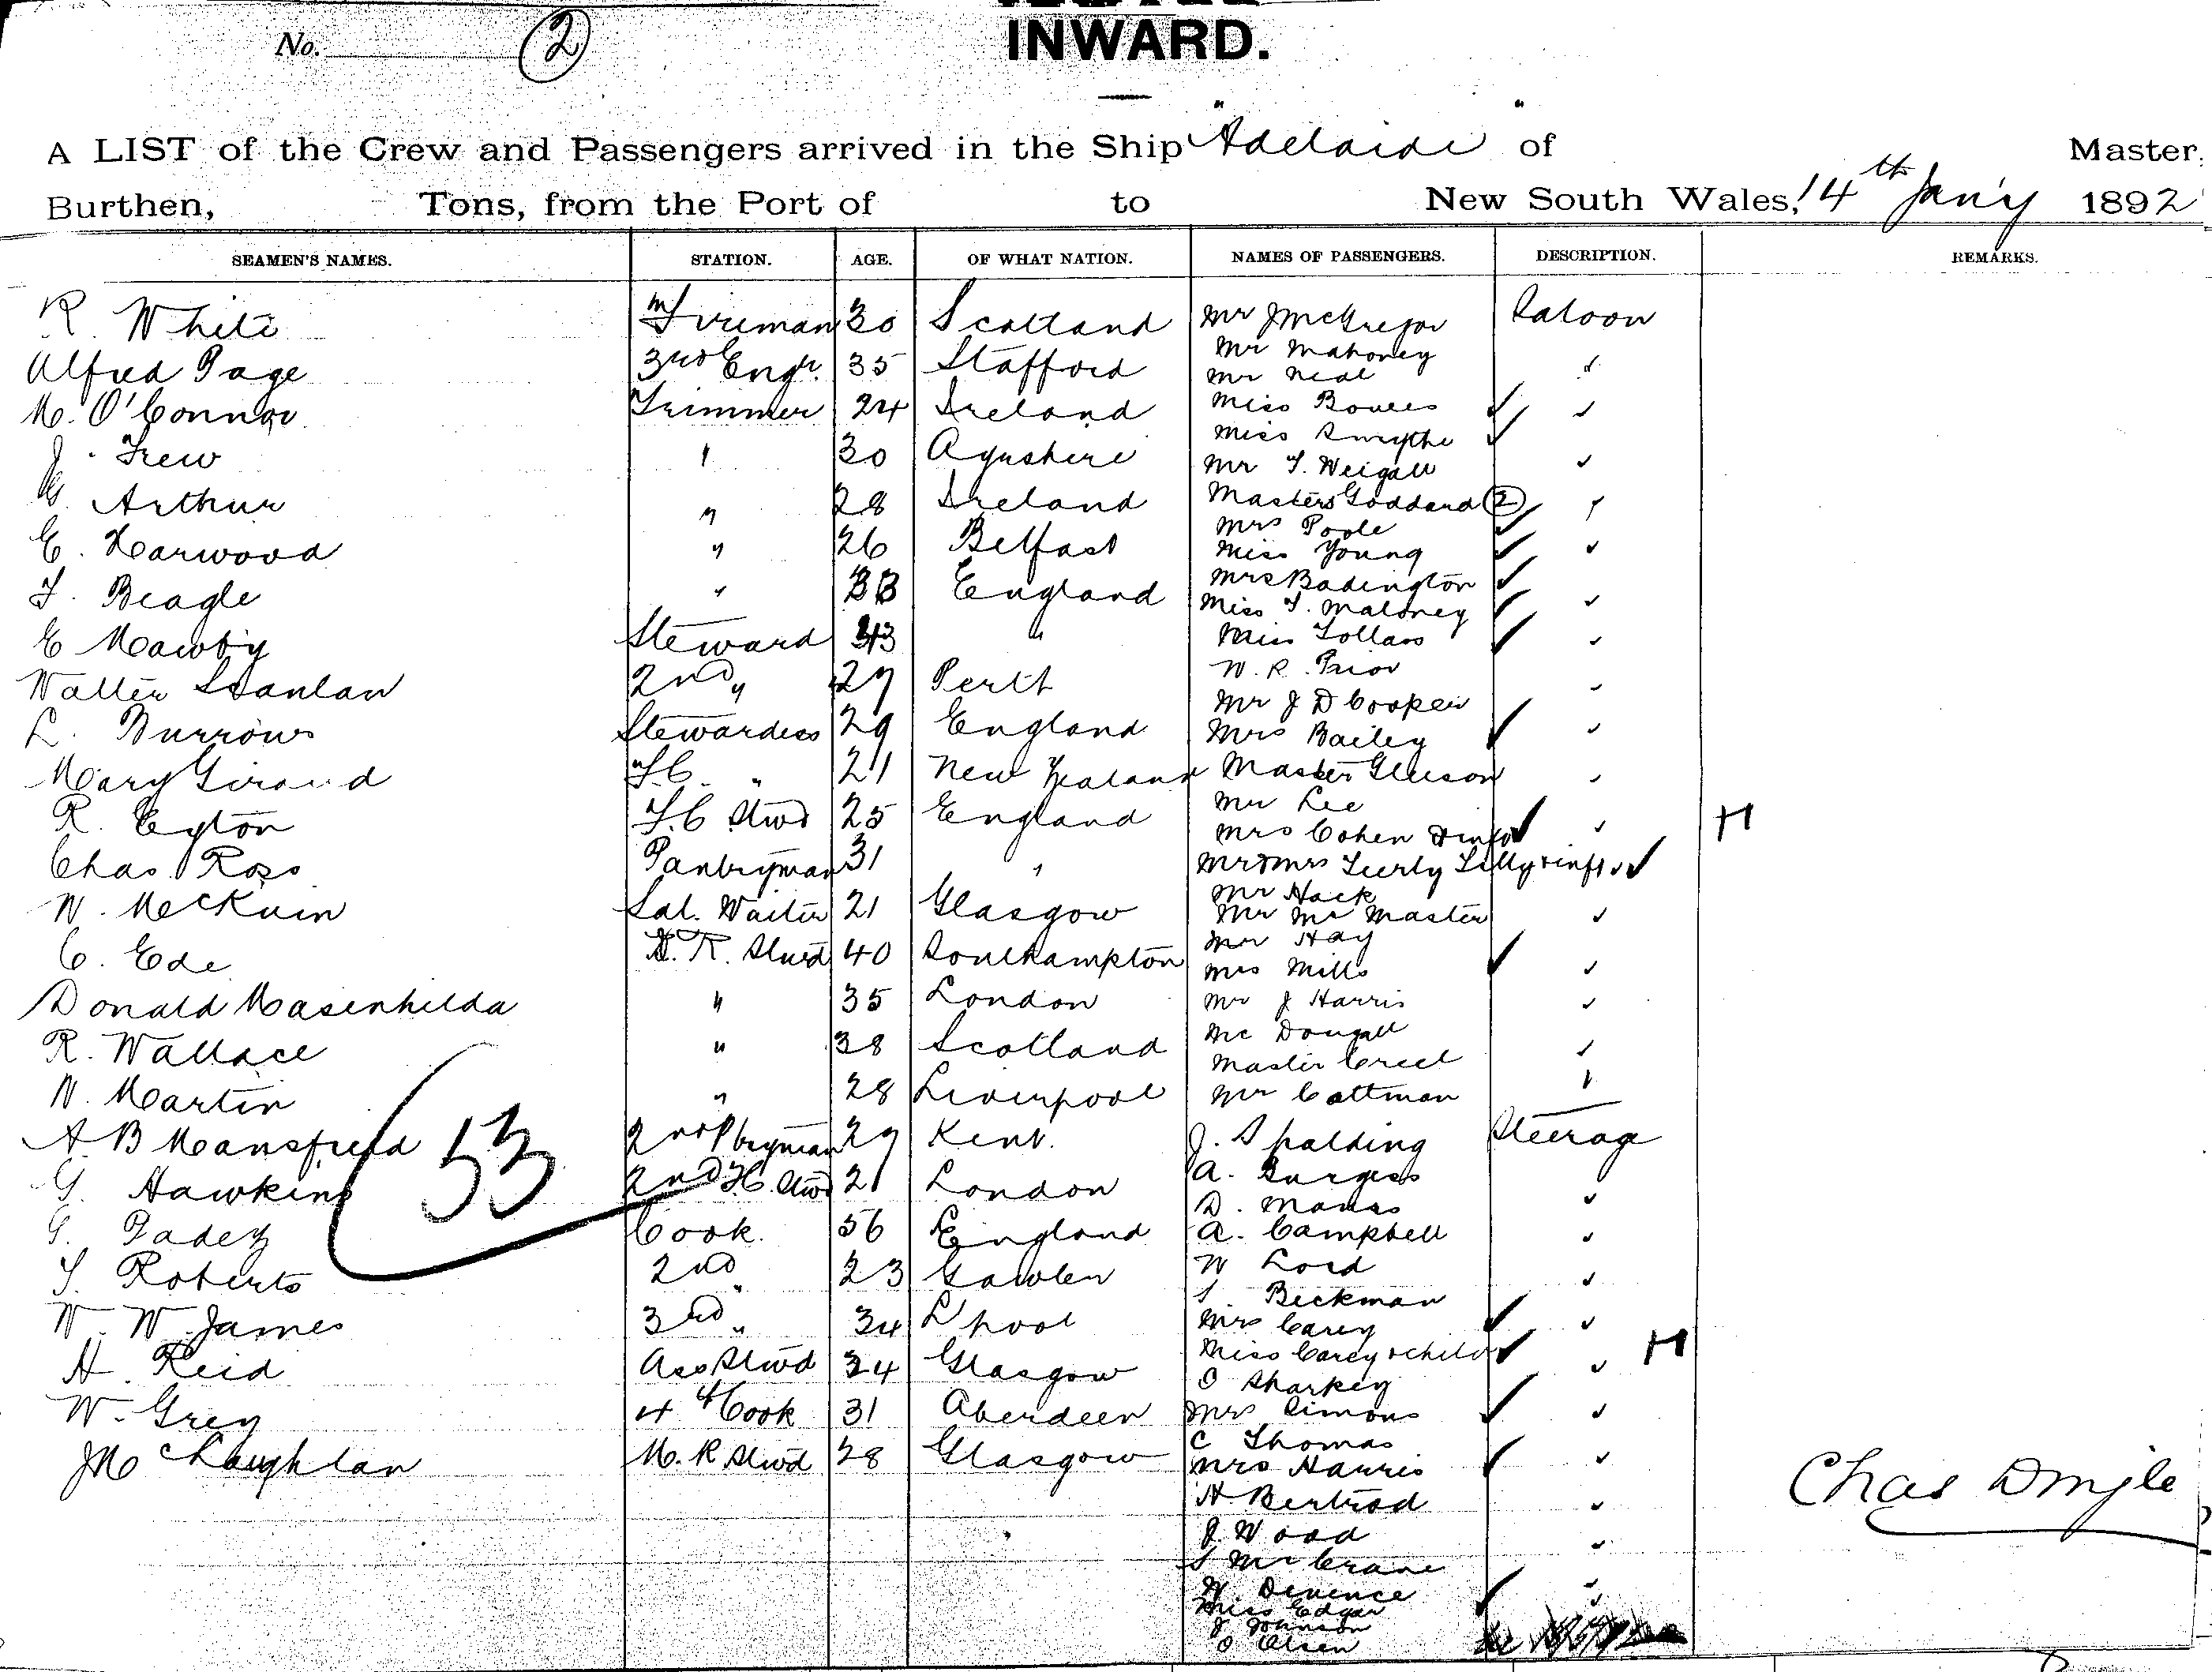 No. 2
INWARD.
A LIST of the Crew and Passengers arrived in the Ship "Adelaide" of Master.
Burthen, Tons, from the Port of to New South Wales, 14th Jan'y 1892
SEAMEN'S NAMES. STATION. AGE. OF WHAT NATION. NAMES OF PASSENGERS. DESCRIPTION. REMARKS.
R. White Fireman 30 Scotland
Alfred Page 3rd Engr. 35 Stafford
M. O'Connor Trimmer 24 Ireland
J. Frew " 30 Ayrshire
Arthur " 28 Ireland
E. Harwood " 26 Belfast
F. Beagle " England
E Mawby Steward 43 "
Walter Scanlan 2nd " 27 Perth
L. Burrows Stewardess 29 England
Mary Giraud " 21 New Zealand
R. Eyton F.C Stwd 25 England
Chas. Ross Pantryman 31 "
W. McKuin Sal. Waiter 21 Glasgow
C. Ede Stwd 40 Southampton
Donald " 35 London
R. Wallace " 38 Scotland
W. Martin " 28 Liverpool
A B Mansfield 2nd P'tryman 27 Kent.
G. Hawkins 2nd Stwd 21 London
G. Padey Cook. 56 England
T. Roberts 2nd " 23 Gawler
W. W. James 3rd " 34 L'pool
H. Reid Ass Stwd 24 Glasgow
W. Grey 4th Cook 31 Aberdeen
J Mc Laughlan M. R Stwd 28 Glasgow
53
Mr J McGregor Saloon
Mr Mahoney
Mr Neal
Miss Bowles
Miss Smythe
Mr T. Weigall
Masters Goddard 2
Mrs Poole
Miss Young
Mrs Badington
Miss T. Maloney
Miss
W. R. Prior
Mr J D Cooper
Mrs Bailey
Master Gleeson
Mr Lee
Mrs Cohen & inft H
Mr & Mrs Lilly & inft
Mr Hack
Mr Mc Master
Mr Hay
Mrs Mills
Mr J Harris
Mc Dougall
Master Creel
Mr Cottman
J. Spalding Steerage
A. Burgess
D. Manss
A. Campbell
W Lord
Beckman
Mrs Carey
Miss Carey & child H
O Sharkey
Mrs Simons
C Thomas
Mrs Harris
H Bertrod
J. Wood
S McCrane
W. Devence
Miss Edgar
J Johnson
O Olsen
Chas Dingle